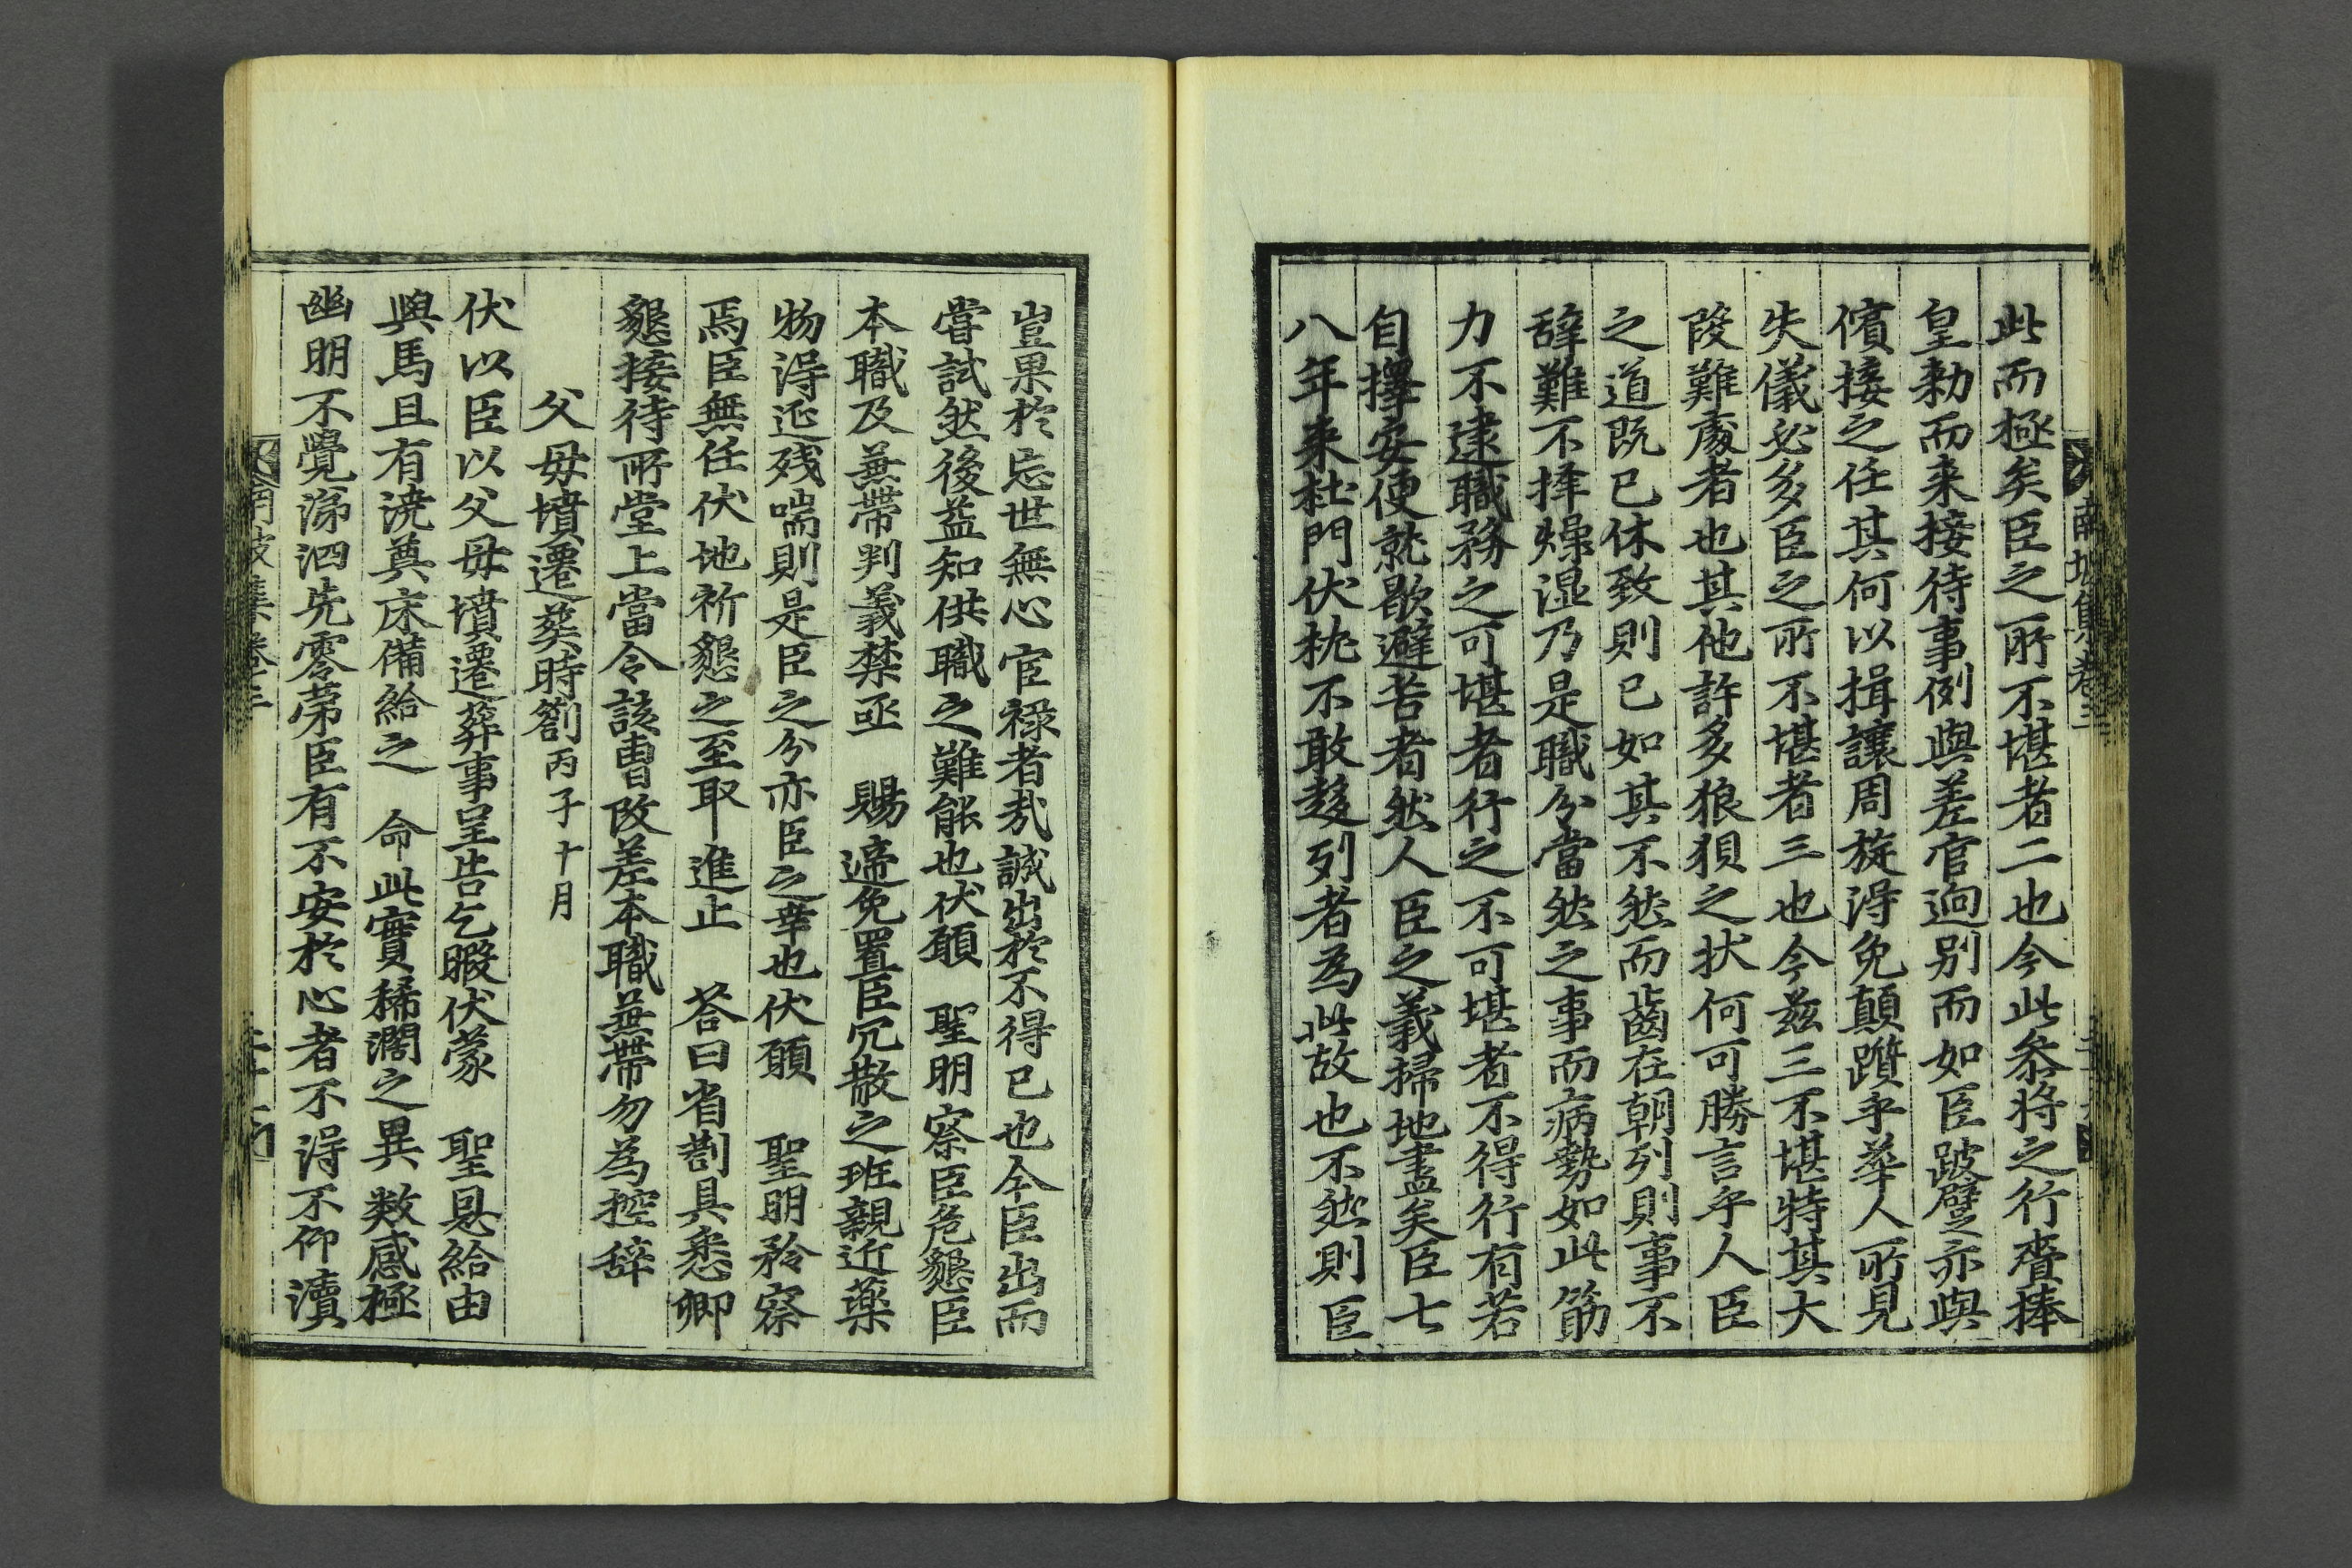 此而極矣臣之所不堪者二也今此叅將之行賫捧
皇勅而来接待事例與差官逈别而如臣跛躄亦與
儐接之任其何以揖讓周旋得免顛躓乎華人所見
失儀必多臣之所不堪者三也今兹三不堪特其大
段難處者也其他許多狼狽之状何可勝言乎人臣
之道既已休致則已如其不然而齒在朝列則事不
辞難不择燥湿乃是職分當然之事而病勢如此筋
力不逮職務之可堪者行之不可堪者不得行有若
自擇安便就歇避苦者然人臣之義掃地盡矣臣七
八年来杜門伏枕不敢趍列者為此故也不然則臣
南坡集卷三
豈果於忘世無心宦禄者㦲誠出於不得已也今臣出而
嘗試然後益知供職之難能也伏願 聖明察臣危懇臣
本職及兼帶判義禁亟 賜遞免置臣冗散之班親近藥
物得延残喘則是臣之分亦臣之幸也伏願 聖明矜察
焉臣無任伏地祈懇之至取進止 荅曰省劄具悉卿
懇接待所堂上當令該曹改差本職兼帶勿為控辞
父母墳遷葬時劄丙子十月
伏以臣以父母墳遷葬事呈告乞暇伏蒙 聖恩給由
與馬且有澆奠床備給之 命此實稀濶之異數感極
幽明不覺涕泗先零苐臣有不安於心者不得不仰瀆
南坡集卷三